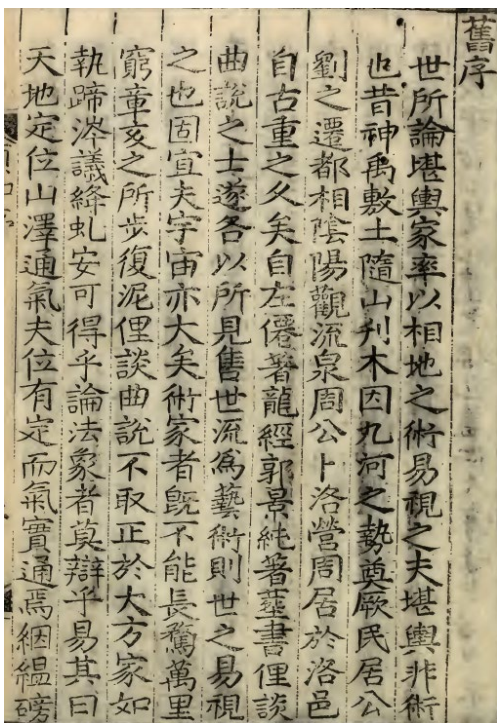 舊序
世所論堪輿家率以相地之術易視之夫堪輿非術
也昔神禹敷土隨山刋木因九河之勢奠厥民居公
劉之遷都相陰陽觀流泉周公卜洛營周居於洛邑
自古重之久矣自左僊著龍經郭景純著葬書俚談
曲說之士遂各以所見售世流爲藝術則世之易視
之也固宜夫宇宙亦大矣術家者旣不能長騖萬里
窮章亥之所步復泥俚談曲說不取正於大方家如
執蹄涔議絳虬安可得乎論法象者莫辯乎易其曰
天地定位山澤通氣夫位有定而氣實通焉絪縕磅